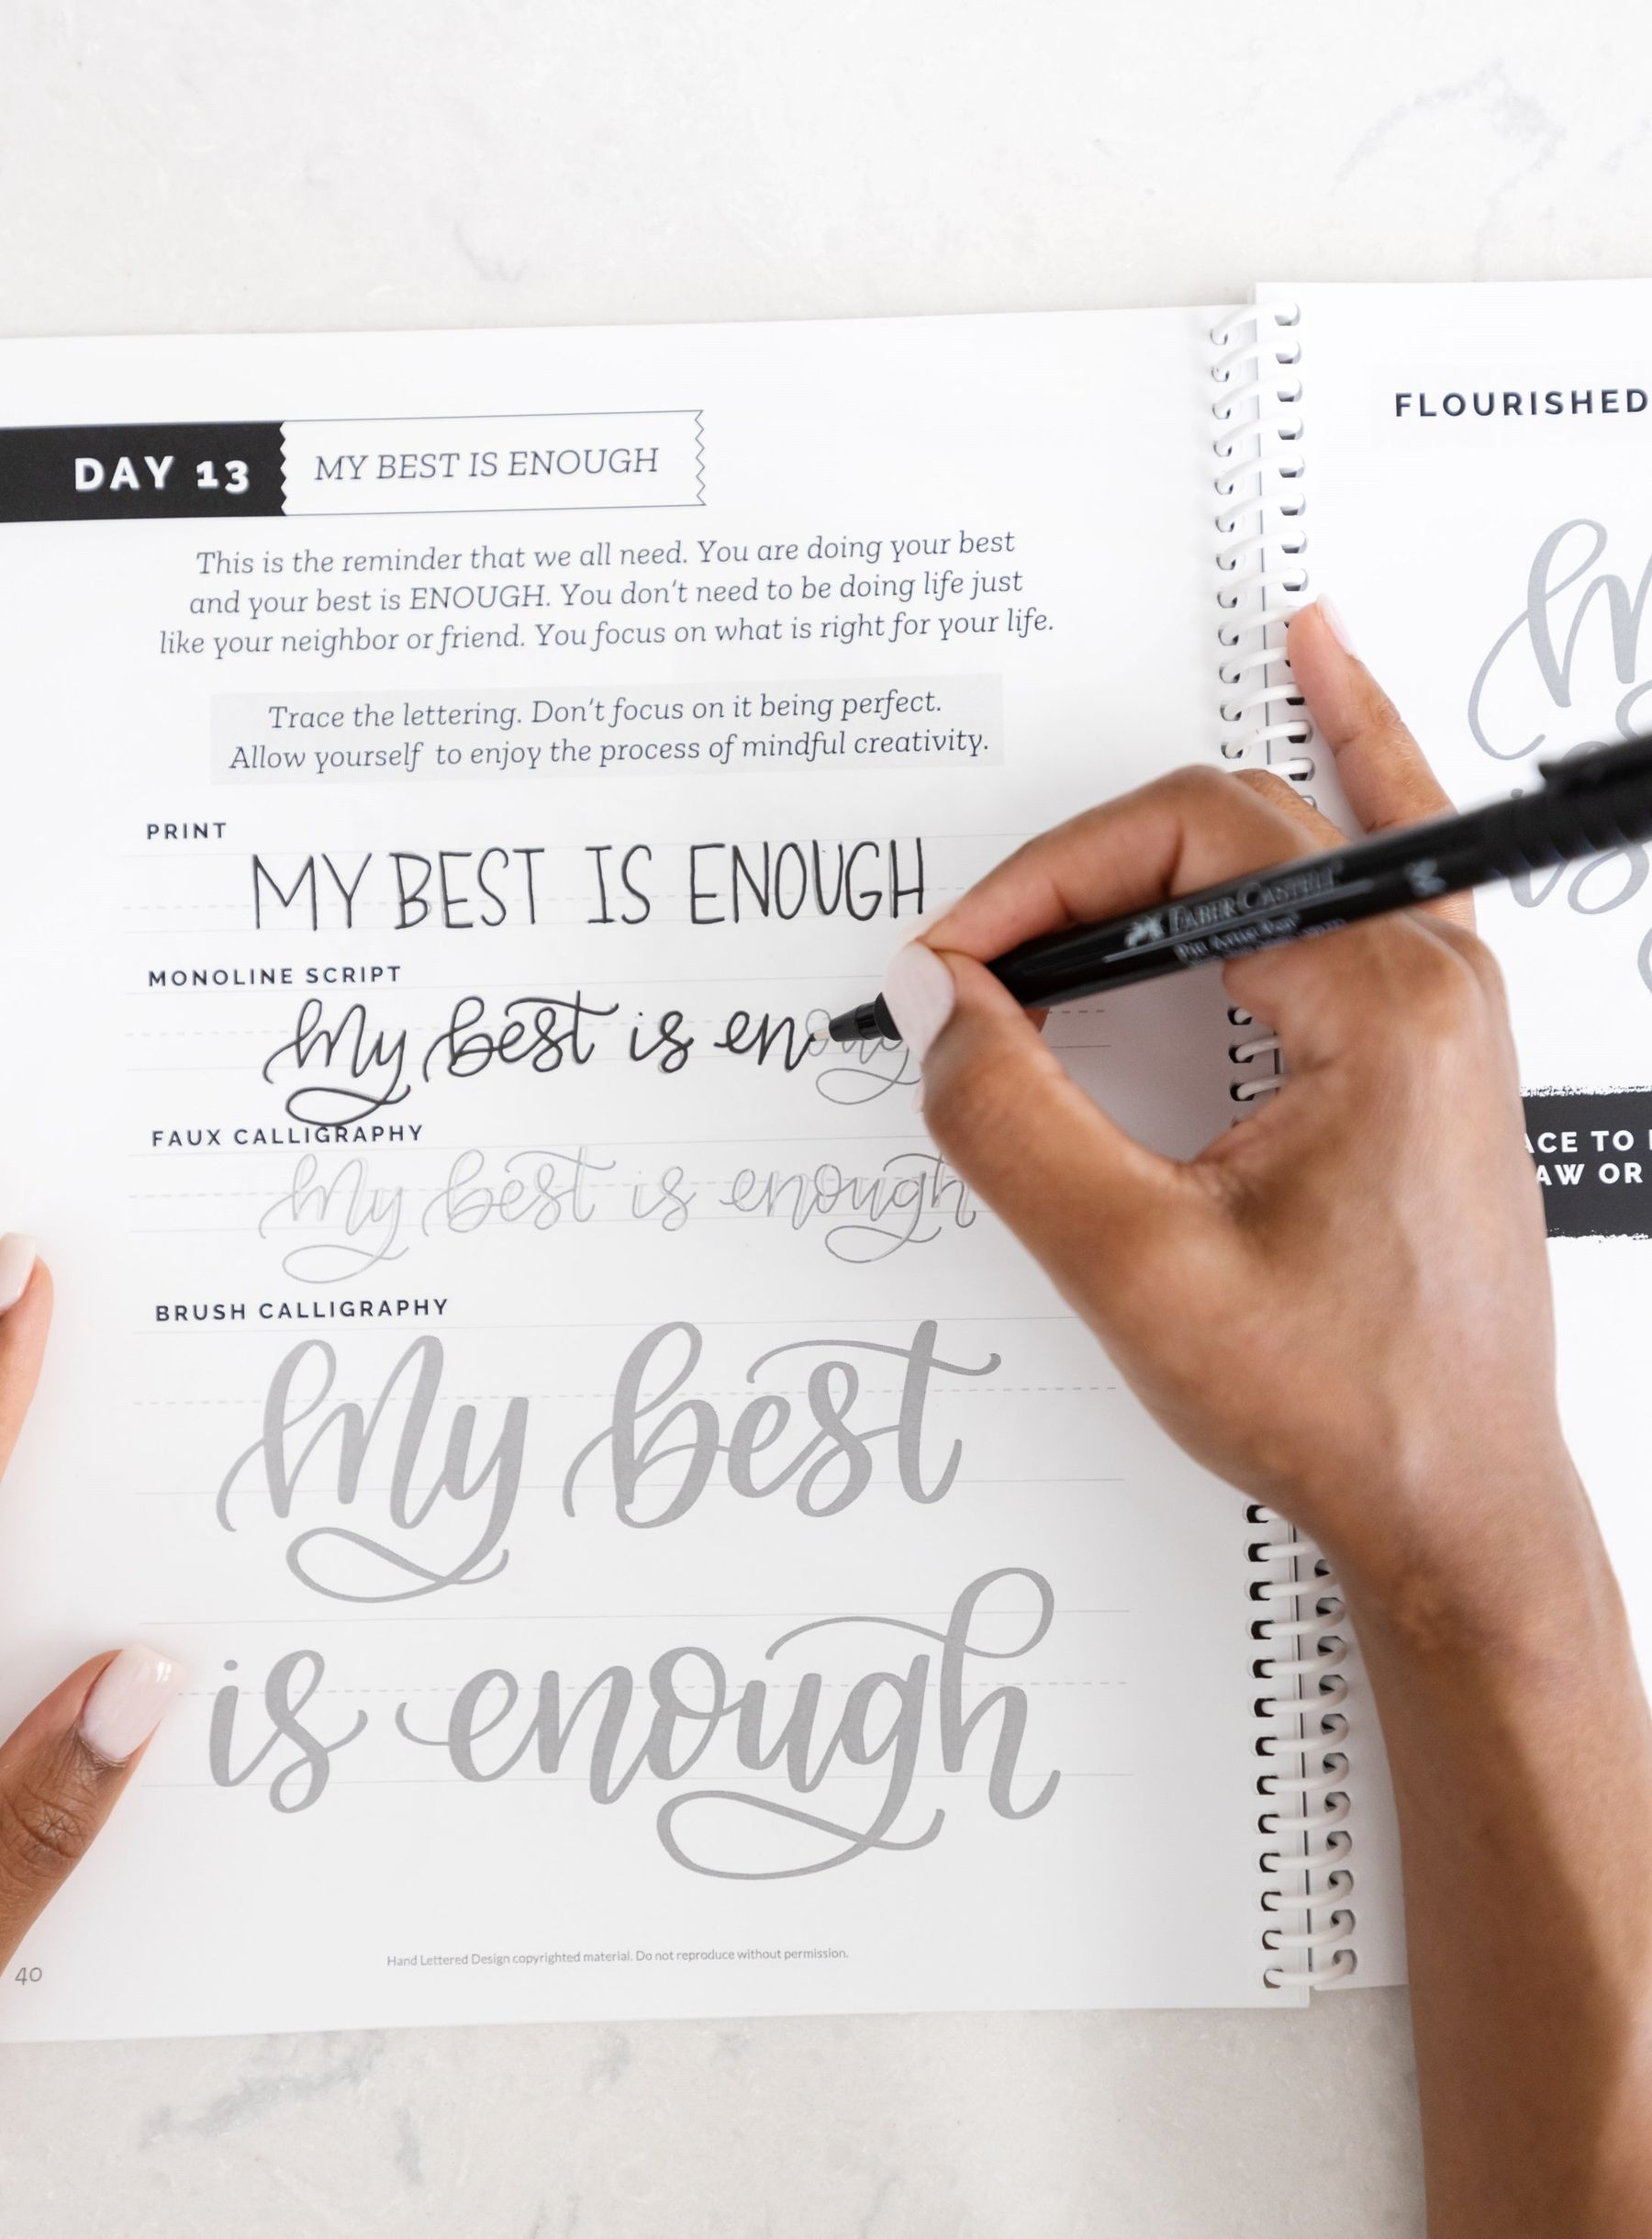 DAY 13
MY BEST IS ENOUGH
This is the reminder that we all need. You are doing your best
and your best is ENOUGH. You don't need to be doing life just
like your neighbor or friend. You focus on what is right for your life.
Trace the lettering. Don't focus on it being perfect.
Allow yourself to enjoy the process of mindful creativity.
PRINT
MY BEST IS ENOUGH
MONOLINE SCRIPT
My best is enoug
FAUX CALLIGRAPHY
My best is enough
BRUSH CALLIGRAPHY
My best
is enough
Hand Lettered Design copyrighted material. Do not reproduce without permission.
40
FLOURISHED
ACE TO
AW OR
FABER-CASTELL
Pitt Artist Pen
S